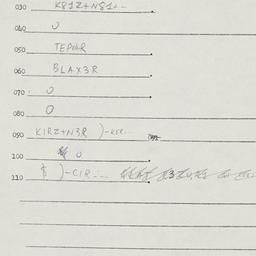 030 K81Z+N81--
040 U
050 TEPHR
060 BLAX3R
070. O
080 O
090 KIRZ+N3R )-KIR...
100 U
110 $ )-CIR....